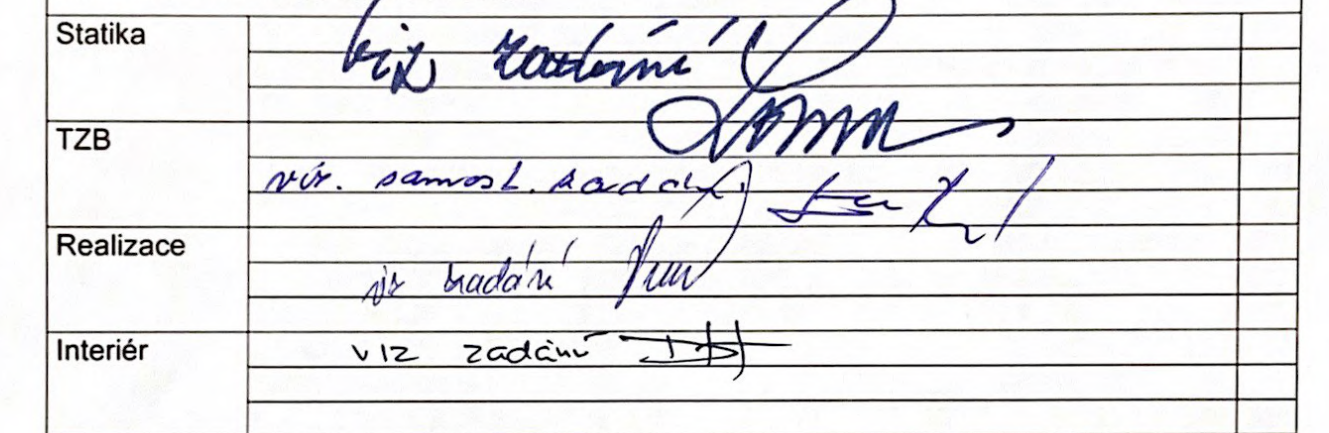 Statika
viz zadání
TZB
viz. samost. zadání
Realizace
viz zadání
Interiér
viz zadání